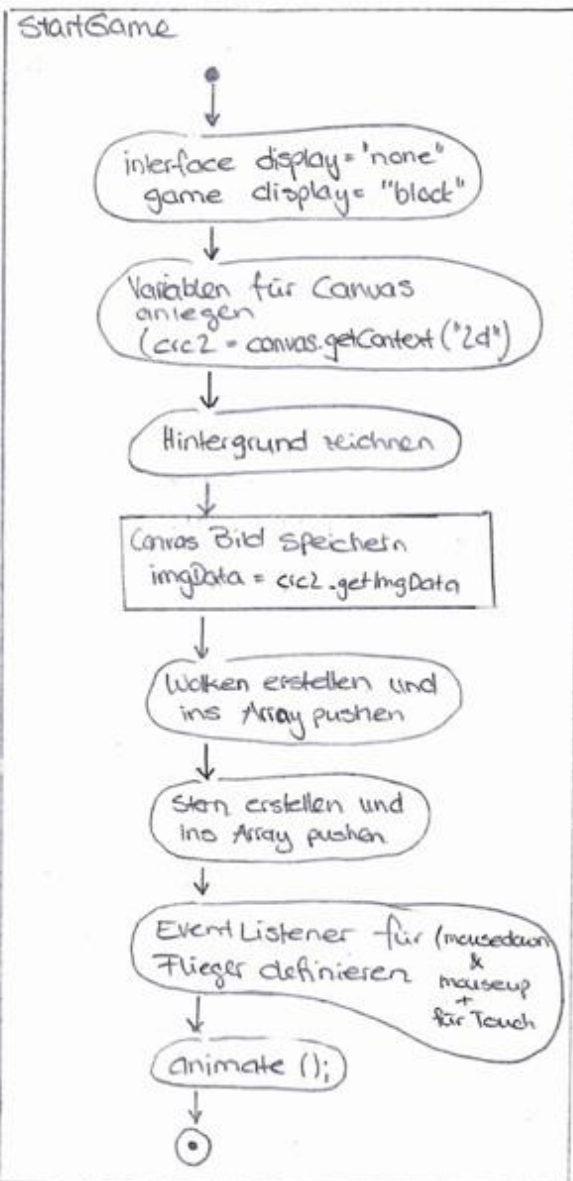 StartGame
interface display="none"
game display= "block"
Variablen für Canvas
anlegen
(crc2 = canvas.getContext("2d")
Hintergrund zeichnen
Canvas Bild speichern
imgData = crc2.getImgData
Wolken erstellen und
ins Array pushen
Stern erstellen und
ins Array pushen
EventListener für (mousedown
Flieger definieren &
mouseup
+
für Touch
animate ();